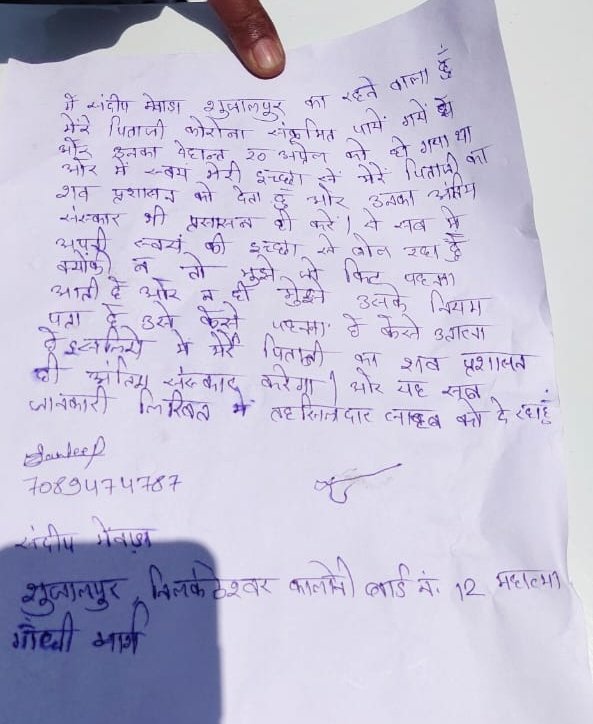 में संदीप मेवाडा शुजालपुर का रहने वाला हूँ
मेरे पिताजी कोरोना संक्रमित पायें गयें थे
और इनका देहान्त 20 अप्रेल को हो गया था
और में स्वयं मेरी इच्छा से मेरे पिताजी का
शव प्रशासन को देता हूँ और उनका अंतिम
संस्कार भी प्रसासन ही करें। ये सब में
अपनी स्वयं की इच्छा से बोल रहा हूँ
क्योंकी न तो मुझे जो किट पहना
आती हैं और न ही मुझे उसके नियम
पता हैं उसे केसे पहना हैं केसे उतारना
हैं इसलिये में मेरे पिताजी का शव प्रशासन
ही अंतिम संस्कार करेगा। और यह सब
जानकारी लिखित में तहसिलदार साहब को दे रहा हूँ
Sandeep
7089474787
संदीप मेवाडा
शुजालपुर, कालोनी वार्ड नं. 12 महात्मा
गाँधी मार्ग